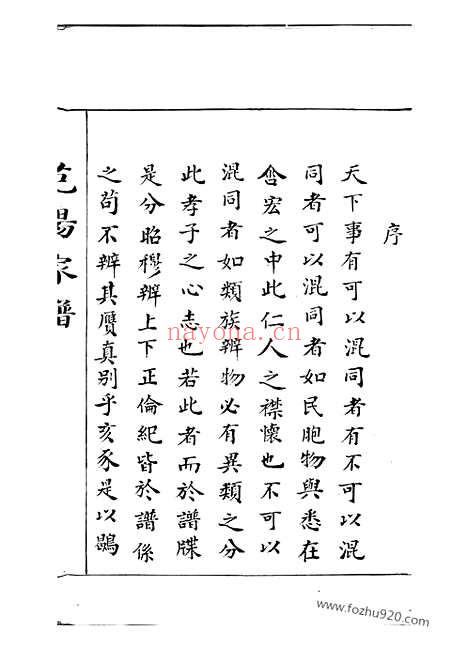 序
天下事有可以混同者有不可以混
同者可以混同者如民胞物與悉在
含宏之中此仁人之襟懷也不可以
混同者如類族辨物必有異類之分
此孝子之心志也若此者而於譜牒
是分昭穆辨上下正倫紀皆於譜係
之茍不辨其贋真別乎亥豕是以鷗
家譜
nayona.cn
www.fozhu920.com